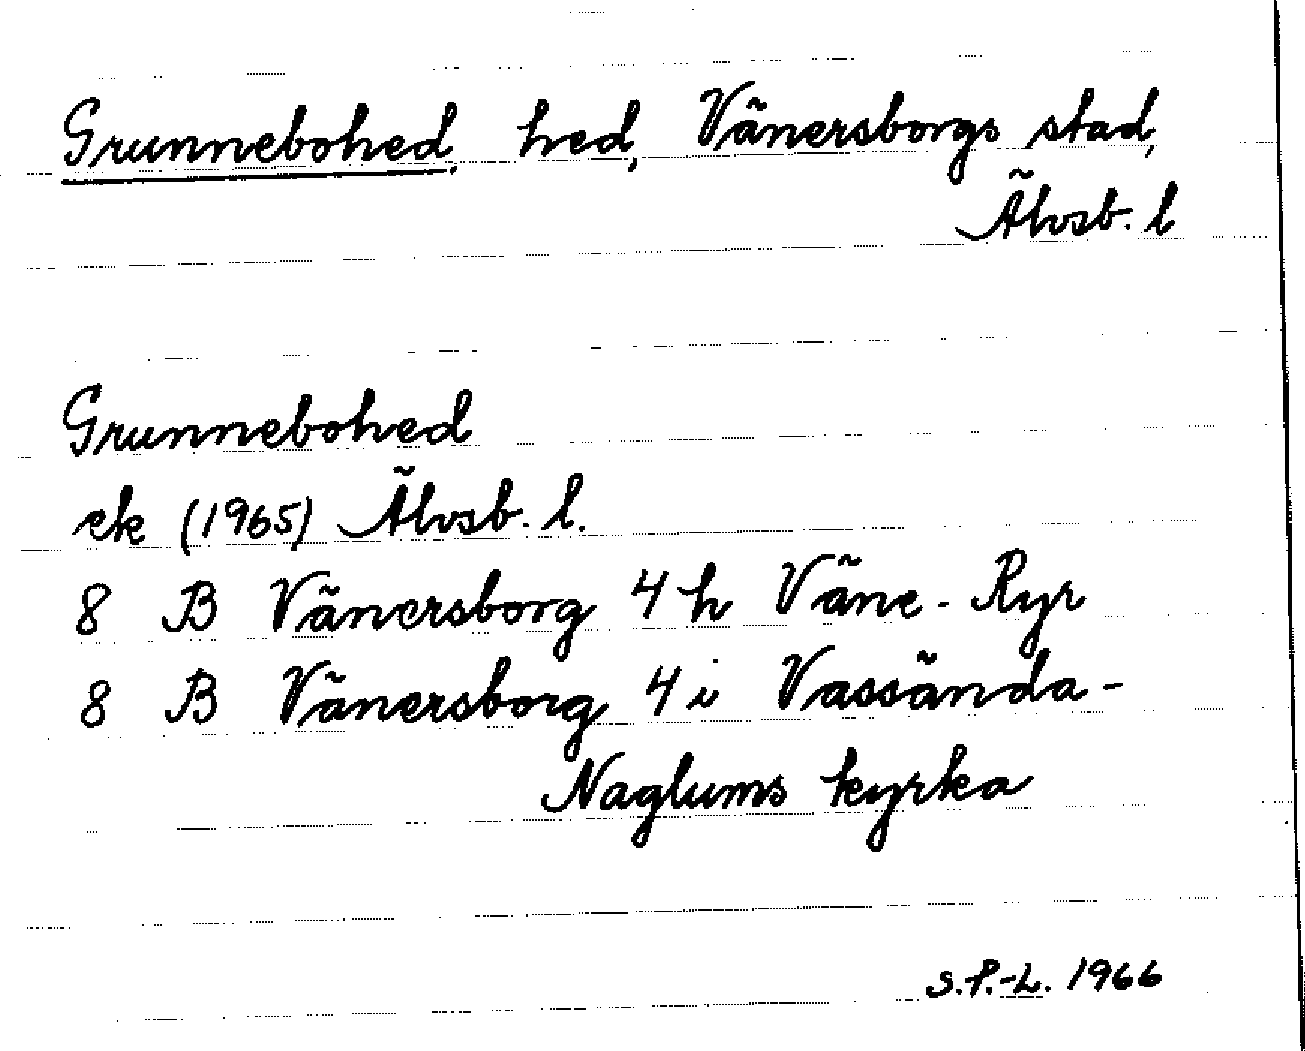 Grunnebohed, hed, Vänersborgs stad,
Älvsb. l
Grunnebohed
ek (1965) Älvsb. l.
8 B Vänersborg 4 h Väne-Ryr
8 B Vänersborg 4 i Vassända-
Naglums kyrka
S.P.-L. 1966